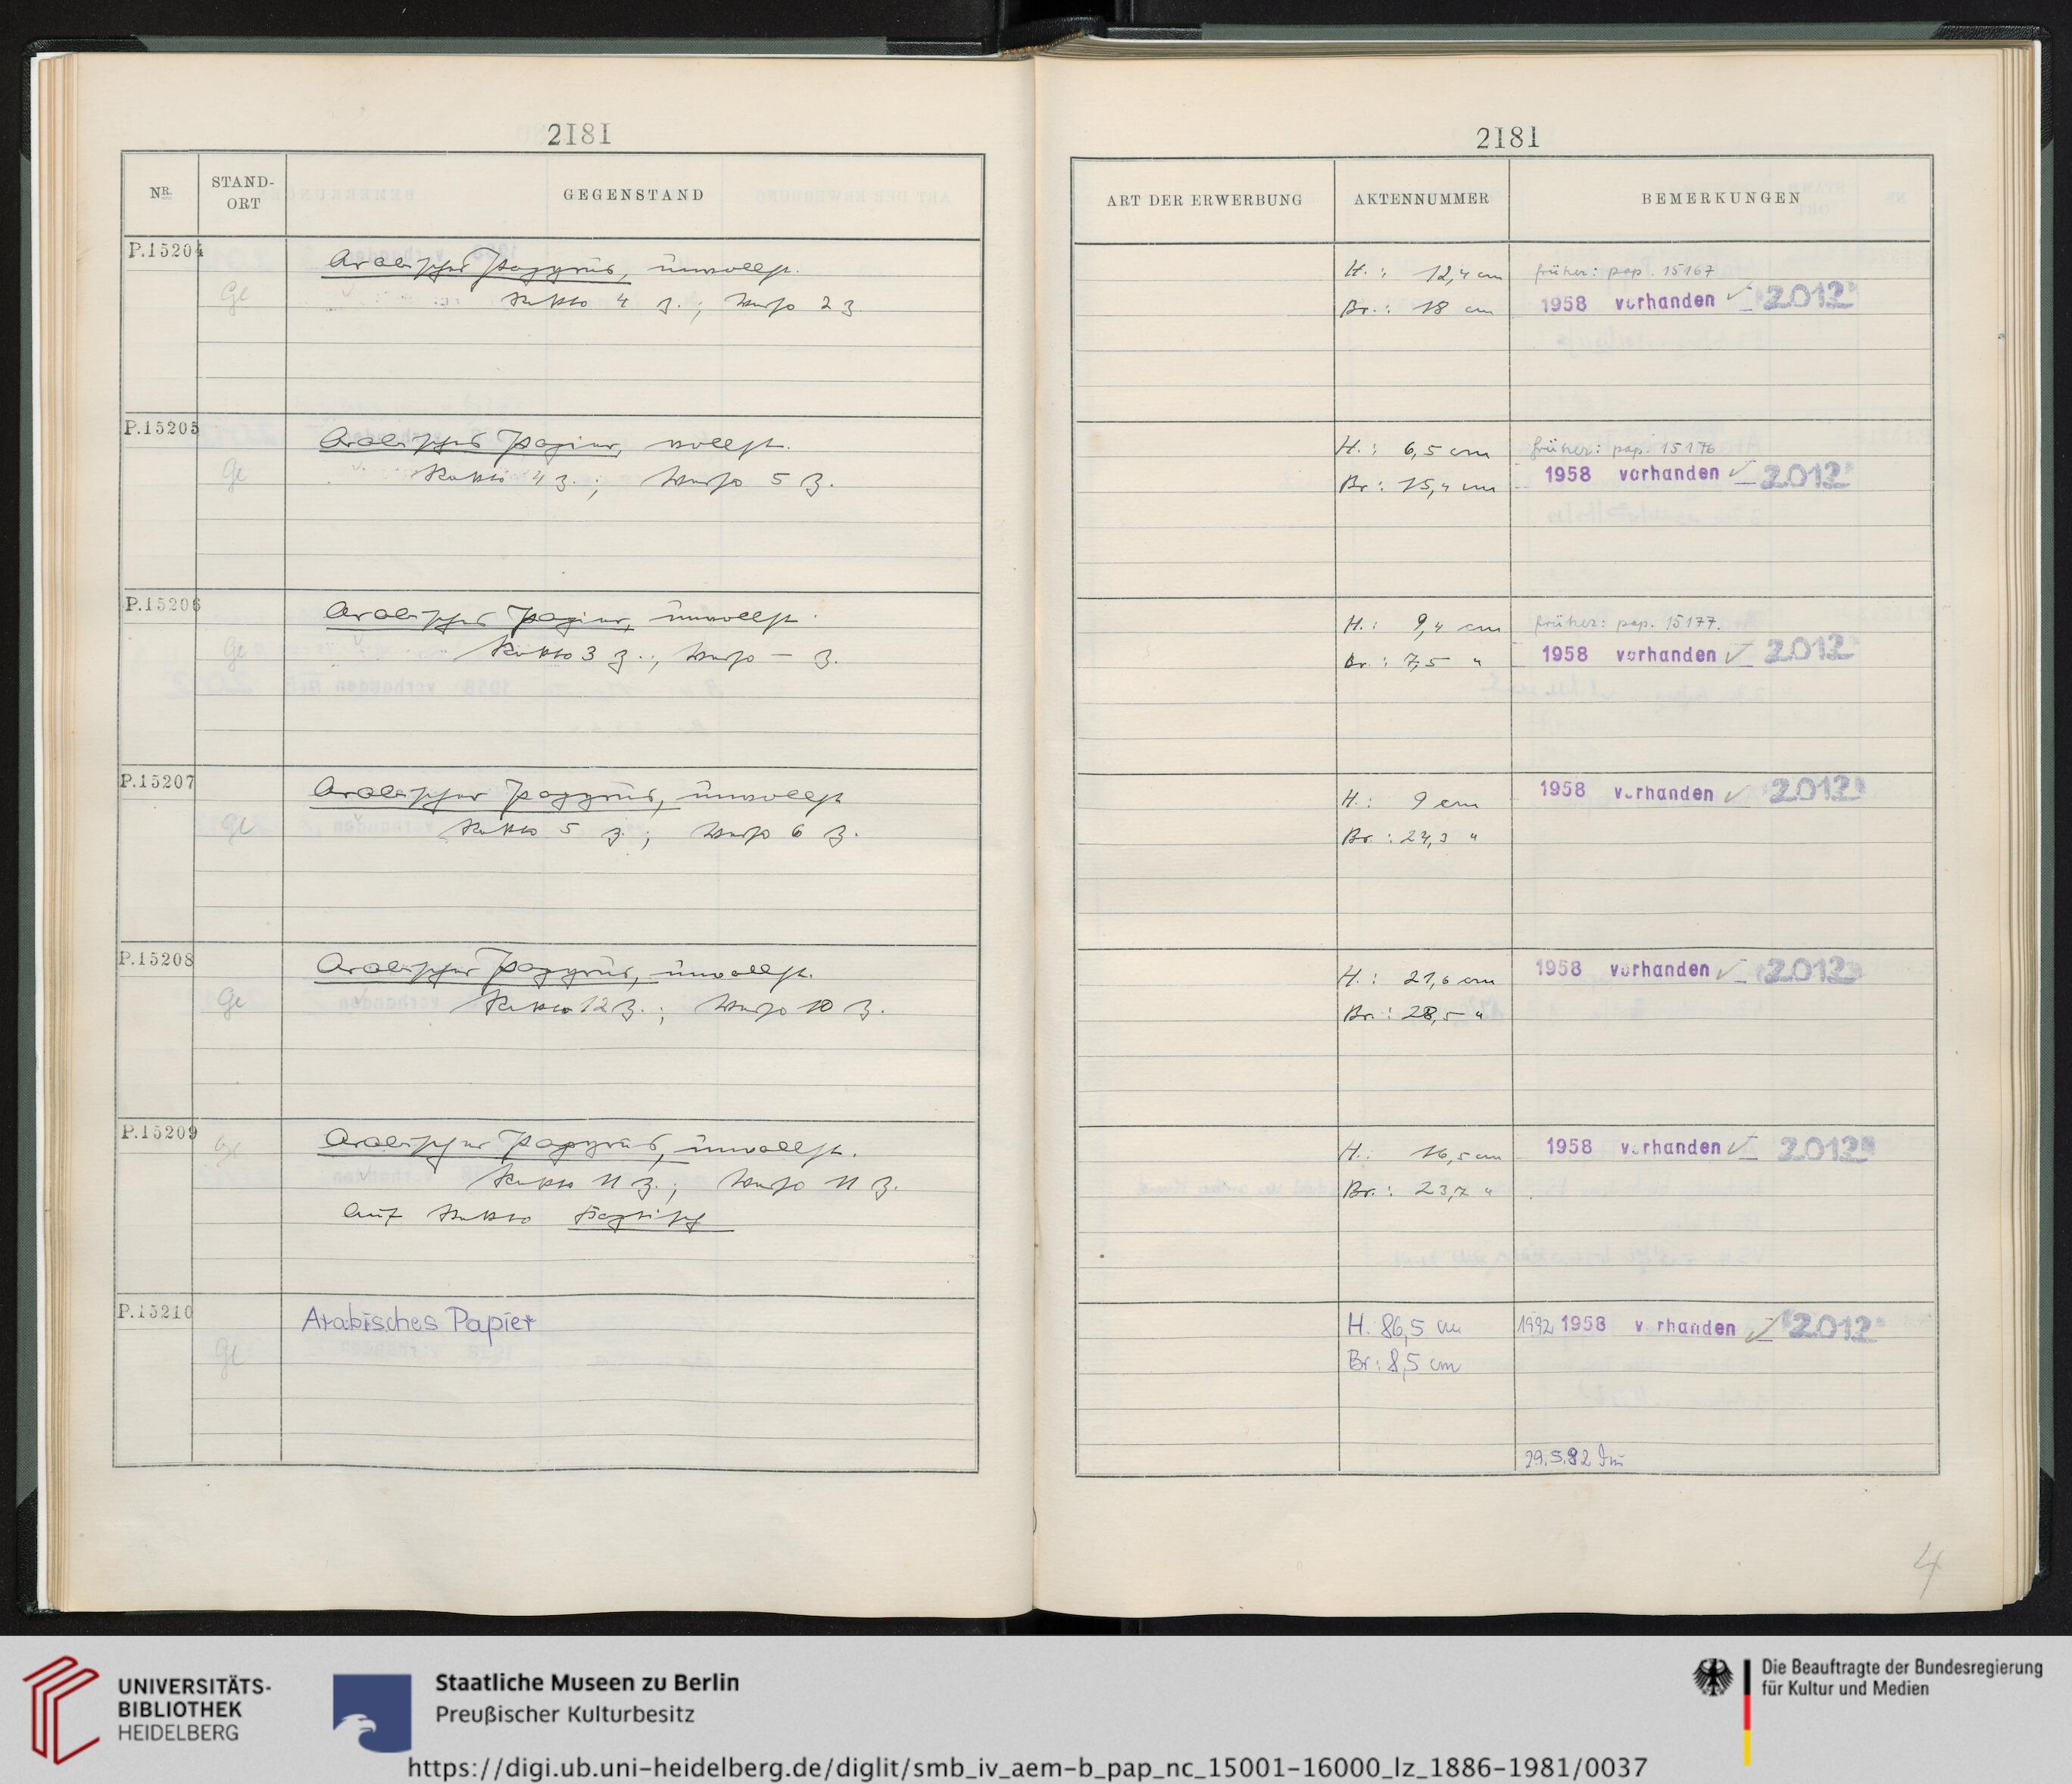 2181
NR. STAND-ORT GEGENSTAND
P.15204
Gl
Arabischer Papyrus, unvollst.
Rekto 4 Z.; Verso 2 Z
P.15205
Gl
Arabisches Papier, vollst.
Rekto 4 Z.; Verso 5 Z.
P.15206
Gl
Arabisches Papier, unvollst.
Rekto 3 Z.; Verso – Z.
P.15207
Gl
Arabischer Papyrus, unvollst
Rekto 5 Z.; Verso 6 Z.
P.15208
Gl
Arabischer Papyrus, unvollst.
Rekto 12 Z.; Verso 10 Z.
P.15209
Gl
Arabischer Papyrus, unvollst.
Rekto 11 Z.; Verso 11 Z.
Auf Rekto
P.15210
Gl
Arabisches Papier
2181
ART DER ERWERBUNG AKTENNUMMER BEMERKUNGEN
H.: 12,4 cm früher: pap. 15167
Br.: 18 cm 1958 vorhanden ✓ 2012
H.: 6,5 cm früher: pap. 15176
Br: 15,4 cm 1958 vorhanden ✓ 2012
H.: 9,4 cm früher: pap. 15177.
Br.: 7,5 " 1958 vorhanden ✓ 2012
H.: 9 cm 1958 vorhanden ✓ 2012
Br.: 24,3 "
H.: 21,6 cm 1958 vorhanden ✓ 2012
Br.: 28,5 "
H.: 16,5 cm 1958 vorhanden ✓ 2012
Br.: 23,7 "
H. 86,5 cm 1992 1958 vorhanden ✓ 2012
Br: 8,5 cm
29.5.92
4
UNIVERSITÄTS-
BIBLIOTHEK
HEIDELBERG
Staatliche Museen zu Berlin
Preußischer Kulturbesitz
Die Beauftragte der Bundesregierung
für Kultur und Medien
https://digi.ub.uni-heidelberg.de/diglit/smb_iv_aem-b_pap_nc_15001-16000_lz_1886-1981/0037